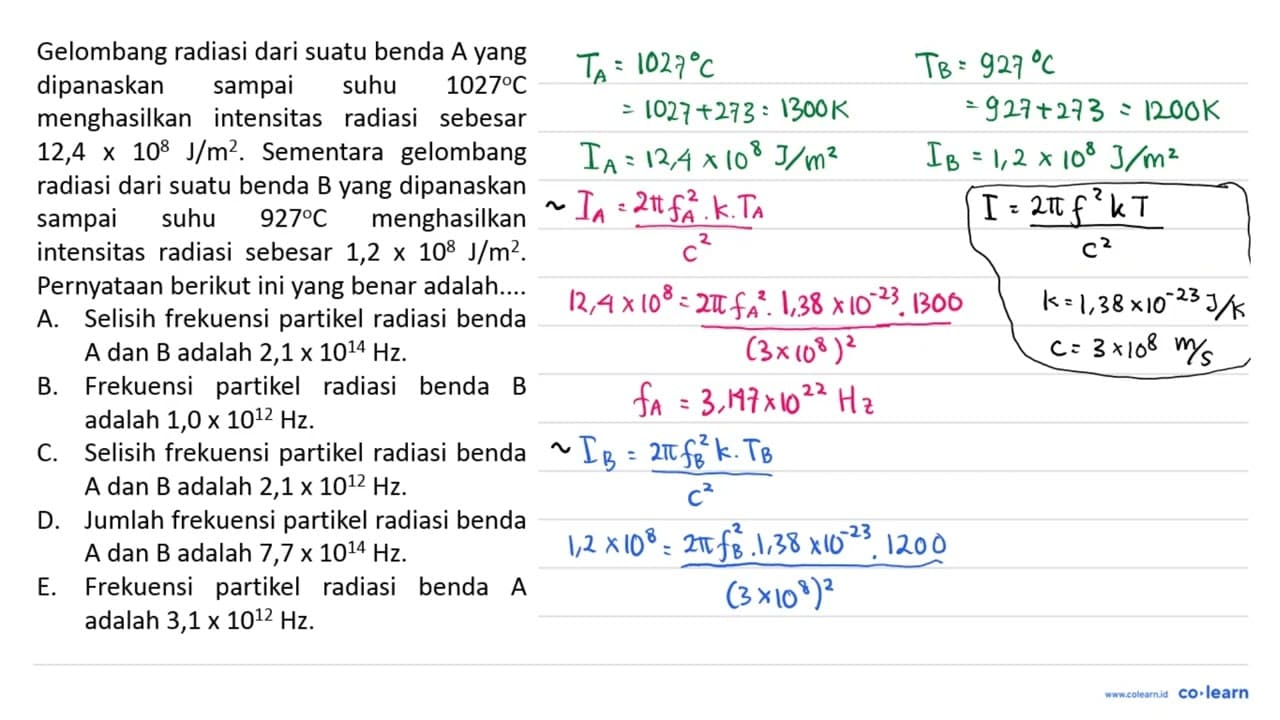 Gelombang radiasi dari suatu benda A yang
dipanaskan sampai suhu 1027°C
menghasilkan intensitas radiasi sebesar
12,4 x 10⁸ J/m². Sementara gelombang
radiasi dari suatu benda B yang dipanaskan
sampai suhu 927°C menghasilkan
intensitas radiasi sebesar 1,2 x 10⁸ J/m².
Pernyataan berikut ini yang benar adalah....
A. Selisih frekuensi partikel radiasi benda
A dan B adalah 2,1 x 10¹⁴ Hz.
B. Frekuensi partikel radiasi benda B
adalah 1,0 x 10¹² Hz.
C. Selisih frekuensi partikel radiasi benda
A dan B adalah 2,1 x 10¹² Hz.
D. Jumlah frekuensi partikel radiasi benda
A dan B adalah 7,7 x 10¹⁴ Hz.
E. Frekuensi partikel radiasi benda A
adalah 3,1 x 10¹² Hz.
T_A = 1027°C
= 1027 + 273 = 1300K
I_A = 12,4 × 10⁸ J/m²
~ I_A = 2π f_A² . k. T_A
c²
12,4 × 10⁸ = 2π f_A² . 1,38 × 10⁻²³ . 1300
(3×10⁸)²
f_A = 3,197×10²² Hz
~ I_B = 2π f_B² k. T_B
c²
1,2 × 10⁸ = 2π f_B² . 1,38 × 10⁻²³ . 1200
(3×10⁸)²
T_B = 927°C
= 927 + 273 = 1200K
I_B = 1,2 × 10⁸ J/m²
I = 2π f² k T
c²
k = 1,38 × 10⁻²³ J/K
c = 3 × 10⁸ m/s
www.colearn.id co·learn